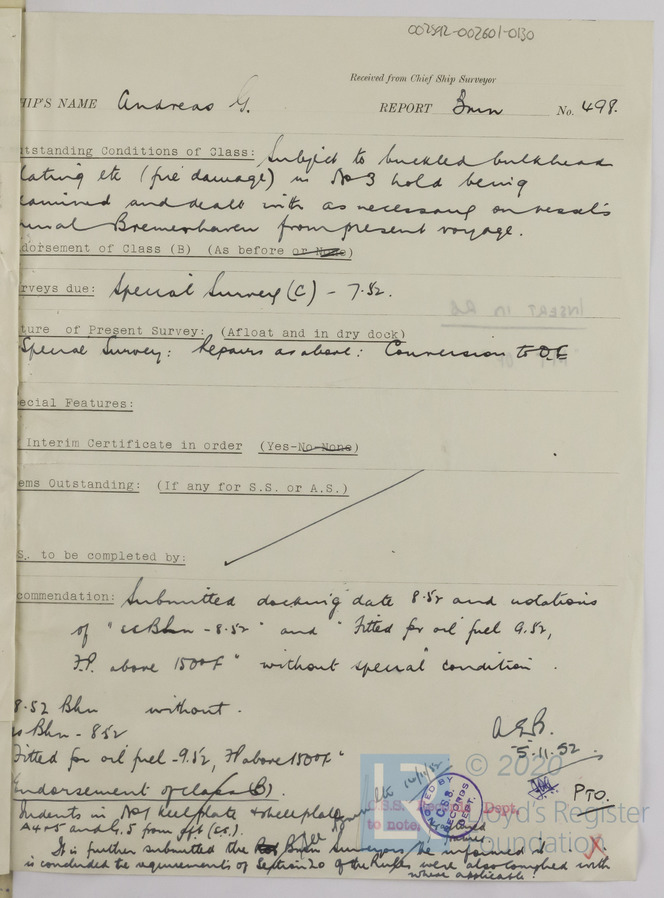 002592-002601-0130
Received from Chief Ship Surveyor
HIP'S NAME Andreas G. REPORT Bmn No. 498.
tstanding Conditions of Class: Subject to buckled bulkhead
lating etc (fire damage) in No 3 hold being
amined and dealt with as necessary on vessel's
Bremerhaven from present voyage.
dorsement of Class (B) (As before or None)
rveys due: Special Survey (C) - 7.52.
INSERT IN RB
ture of Present Survey: (Afloat and in dry dock)
Special Survey: Repairs as above: Conversion to O.F.
ecial Features:
Interim Certificate in order (Yes-No-None)
ems Outstanding: (If any for S.S. or A.S.)
S. to be completed by:
commendation: Submitted docking date 8.52 and notations
of "ss Bhn - 8.52" and "Fitted for oil fuel 9.52,
F.P. above 150°F" without special condition.
8.52 Bhn without.
ss Bhn - 8.52
Fitted for oil fuel - 9.52, FP above 150°F"
A.E.B.
5.11.52
© 2020
Endorsement of class (B).
PTO.
Indents in No1 keelplate & shellplates
C.S.S. RECORDS DEPT.
to note.
Lloyd's Register
Foundation
A4+5 and G.5 from fft (C.S.).
It is further submitted the Bmn Surveyors be informed it
is concluded the requirements of Section 20 of the Rules were also complied with
where applicable.